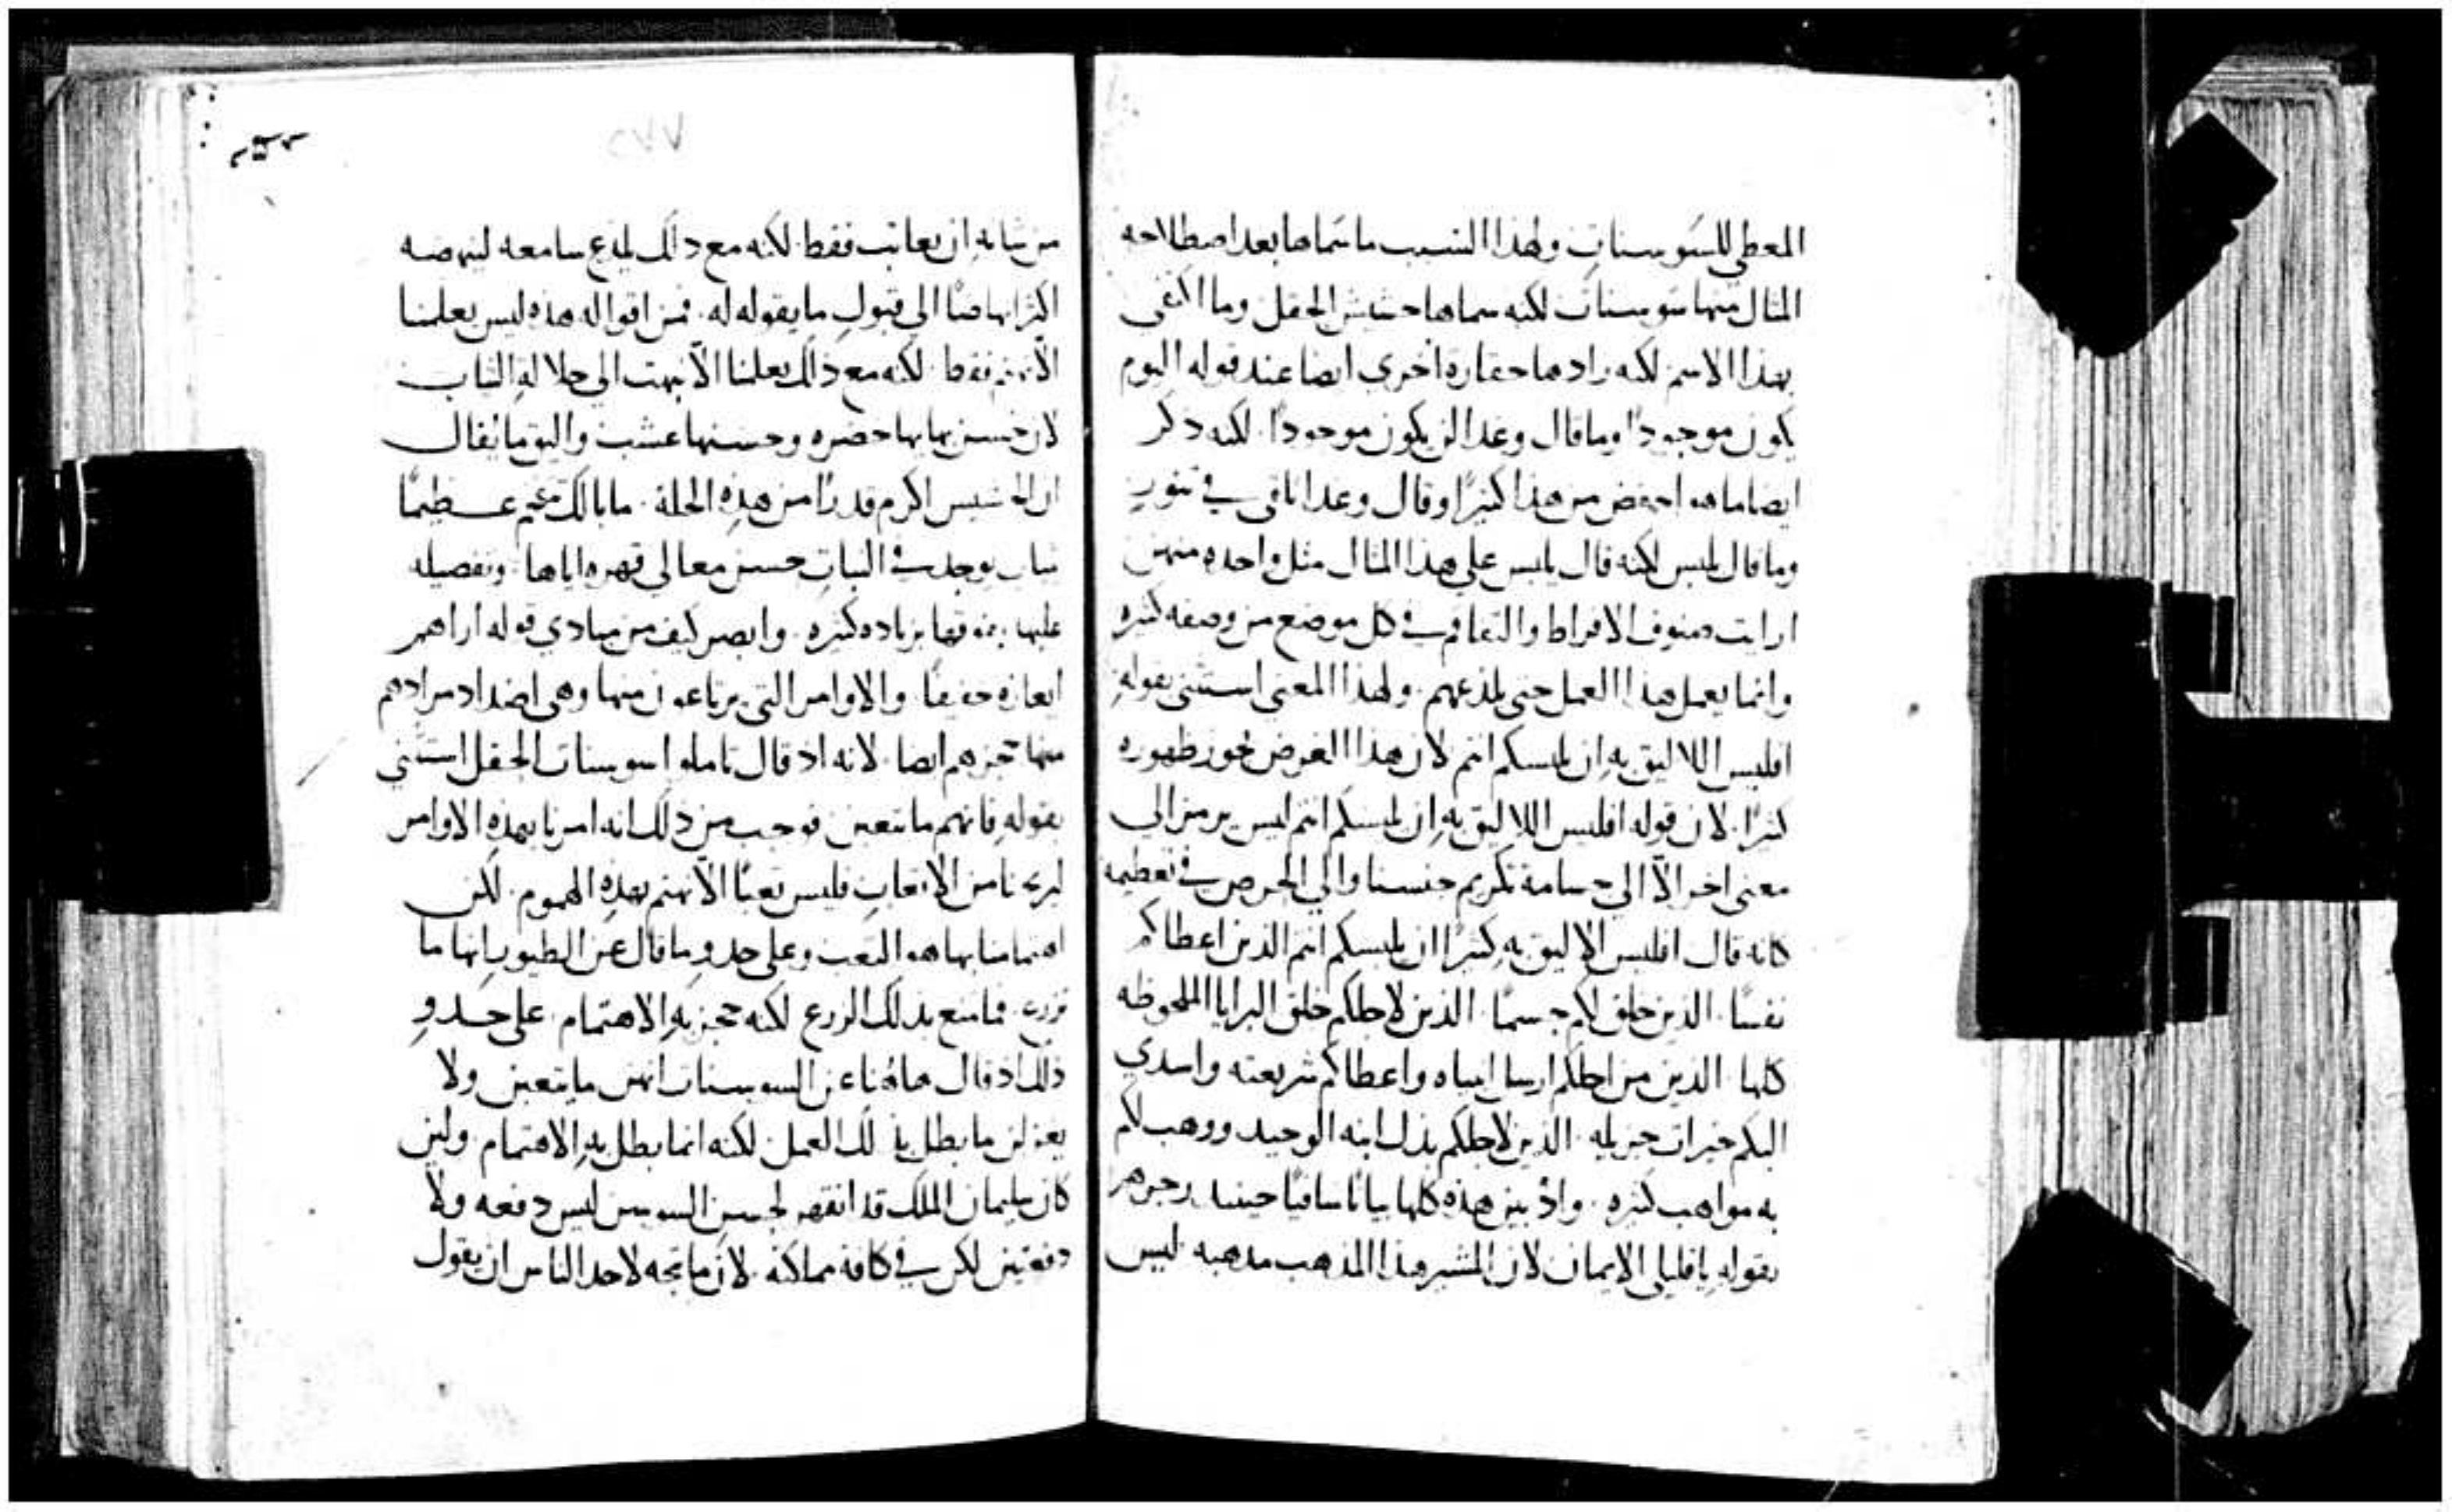 المعطي للسوسنات ولهذا السبب ما سماها بعد اصطلاحه
المثال منها سوسنات لكنه سماها حشيش الحقل وما اكتفى
بهذا الاسم لكنه زادها حقارة اخرى ايضا عند قوله اليوم
يكون موجودًا وما قال وغدا لن يكون موجودًا. لكنه ذكر
ايضا ما هو احفض من هذا كثيرًا وقال وغدا يلقى في تنور
وما قال يلبس لكنه قال يلبس على هذا المثال مثل واحده منهن
ارايت صنوف الافراط والتفاقم في كل موضع من وصفه كثيره
وانما يعمل هذا العمل حتى يلذعهم. ولهذا المعنى استثنى بقوله
افليس اللاليق به ان يلبسكم انتم لان هذا الغرض يحوز ظهوره
كثيرًا. لان قوله افليس اللاليق به ان يلبسكم انتم ليس يرمز الى
معنى اخر الّا الى جسامة تكريم جنسنا والي الحرص في تعظيمه
كانه قال افليس الاليق به كثيرًا ان يلبسكم انتم الذين اعطاكم
نفسًا. الذين خلق لكم جسمًا. الذين لاجلكم خلق البرايا الملحوظه
كلها. الذين من اجلكم ارسل انبياه واعطاكم شريعته واسدي
اليكم خيرات جزيله. الذين لاجلكم بذل ابنه الوحيد ووهب لكم
به مواهب كثيره. واذ بين هذه كلها بيانًا شافيًا حينيد زجرهم
بقوله يا قليلي الايمان لان المشير هذا المذهب مذهبه ليس
من شانه ان يعاتب فقط. لكنه مع ذلك يلذع سامعه لينهضه
اكثر انهاضًا الى قبول ما يقوله له. فمن اقواله هذه ليس يعلمنا
الّا نهتم فقط. لكنه مع ذلك يعلمنا الّا نبهت الى جلالة الثياب
لان حسن بهايها خضره وحسنها عشب واليق ما يُقال
ان الحشيش اكرم قدرًا من هذه الحلة. ما بالك تتفخم عظيمًا
بثياب يوجد في النبات حسن معالي قهره اياها وتفضيله
عليها بفوقها بزياده كثيره. وابصر كيف من مبادي قوله اراهم
ايعازه خفيفًا. والاوامر التي يرتاعون منها وهي اضداد مرادهم
منها تحجزهم ايضا. لانه اذ قال تاملوا سوسنات الحقل استثنى
بقوله فانهم ما تتعبن فوجب من ذلك انه امرنا بهذه الاوامر
ليريحنا من الاتعاب فليس تعبًا الّا نهتم بهذه الهموم. لكن
اهتمامنا بها هو التعب وعلى حذو ما قال عن الطيور انها ما
تزرع. فما منع بذلك الزرع لكنه حجز به الاهتمام. على حذو
ذلك اذ قال هاهُنا عن السوسنات انهن ما يتعبن ولا
يغزلن ما بطل بذلك العمل. لكنه انما بطل به الاهتمام. ولين
كان سليمان الملك قد انقهر لحسن السوسن ليس دفعه ولا
دفعتين لكن في كافة مملكته. لان ما يتجه لاحد الناس ان يقول